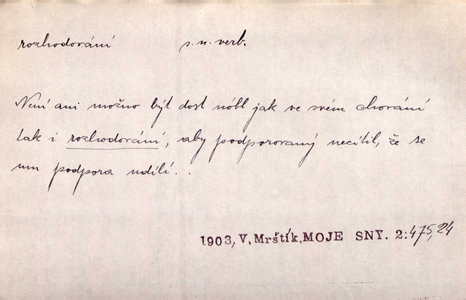 rozhodování s. n. verb.
Není ani možno být dost nóbl jak ve svém chování
tak i rozhodování, aby podporovaný necítil, že se
mu podpora udílí..
1903, V. Mrštík, MOJE SNY. 2:475,24